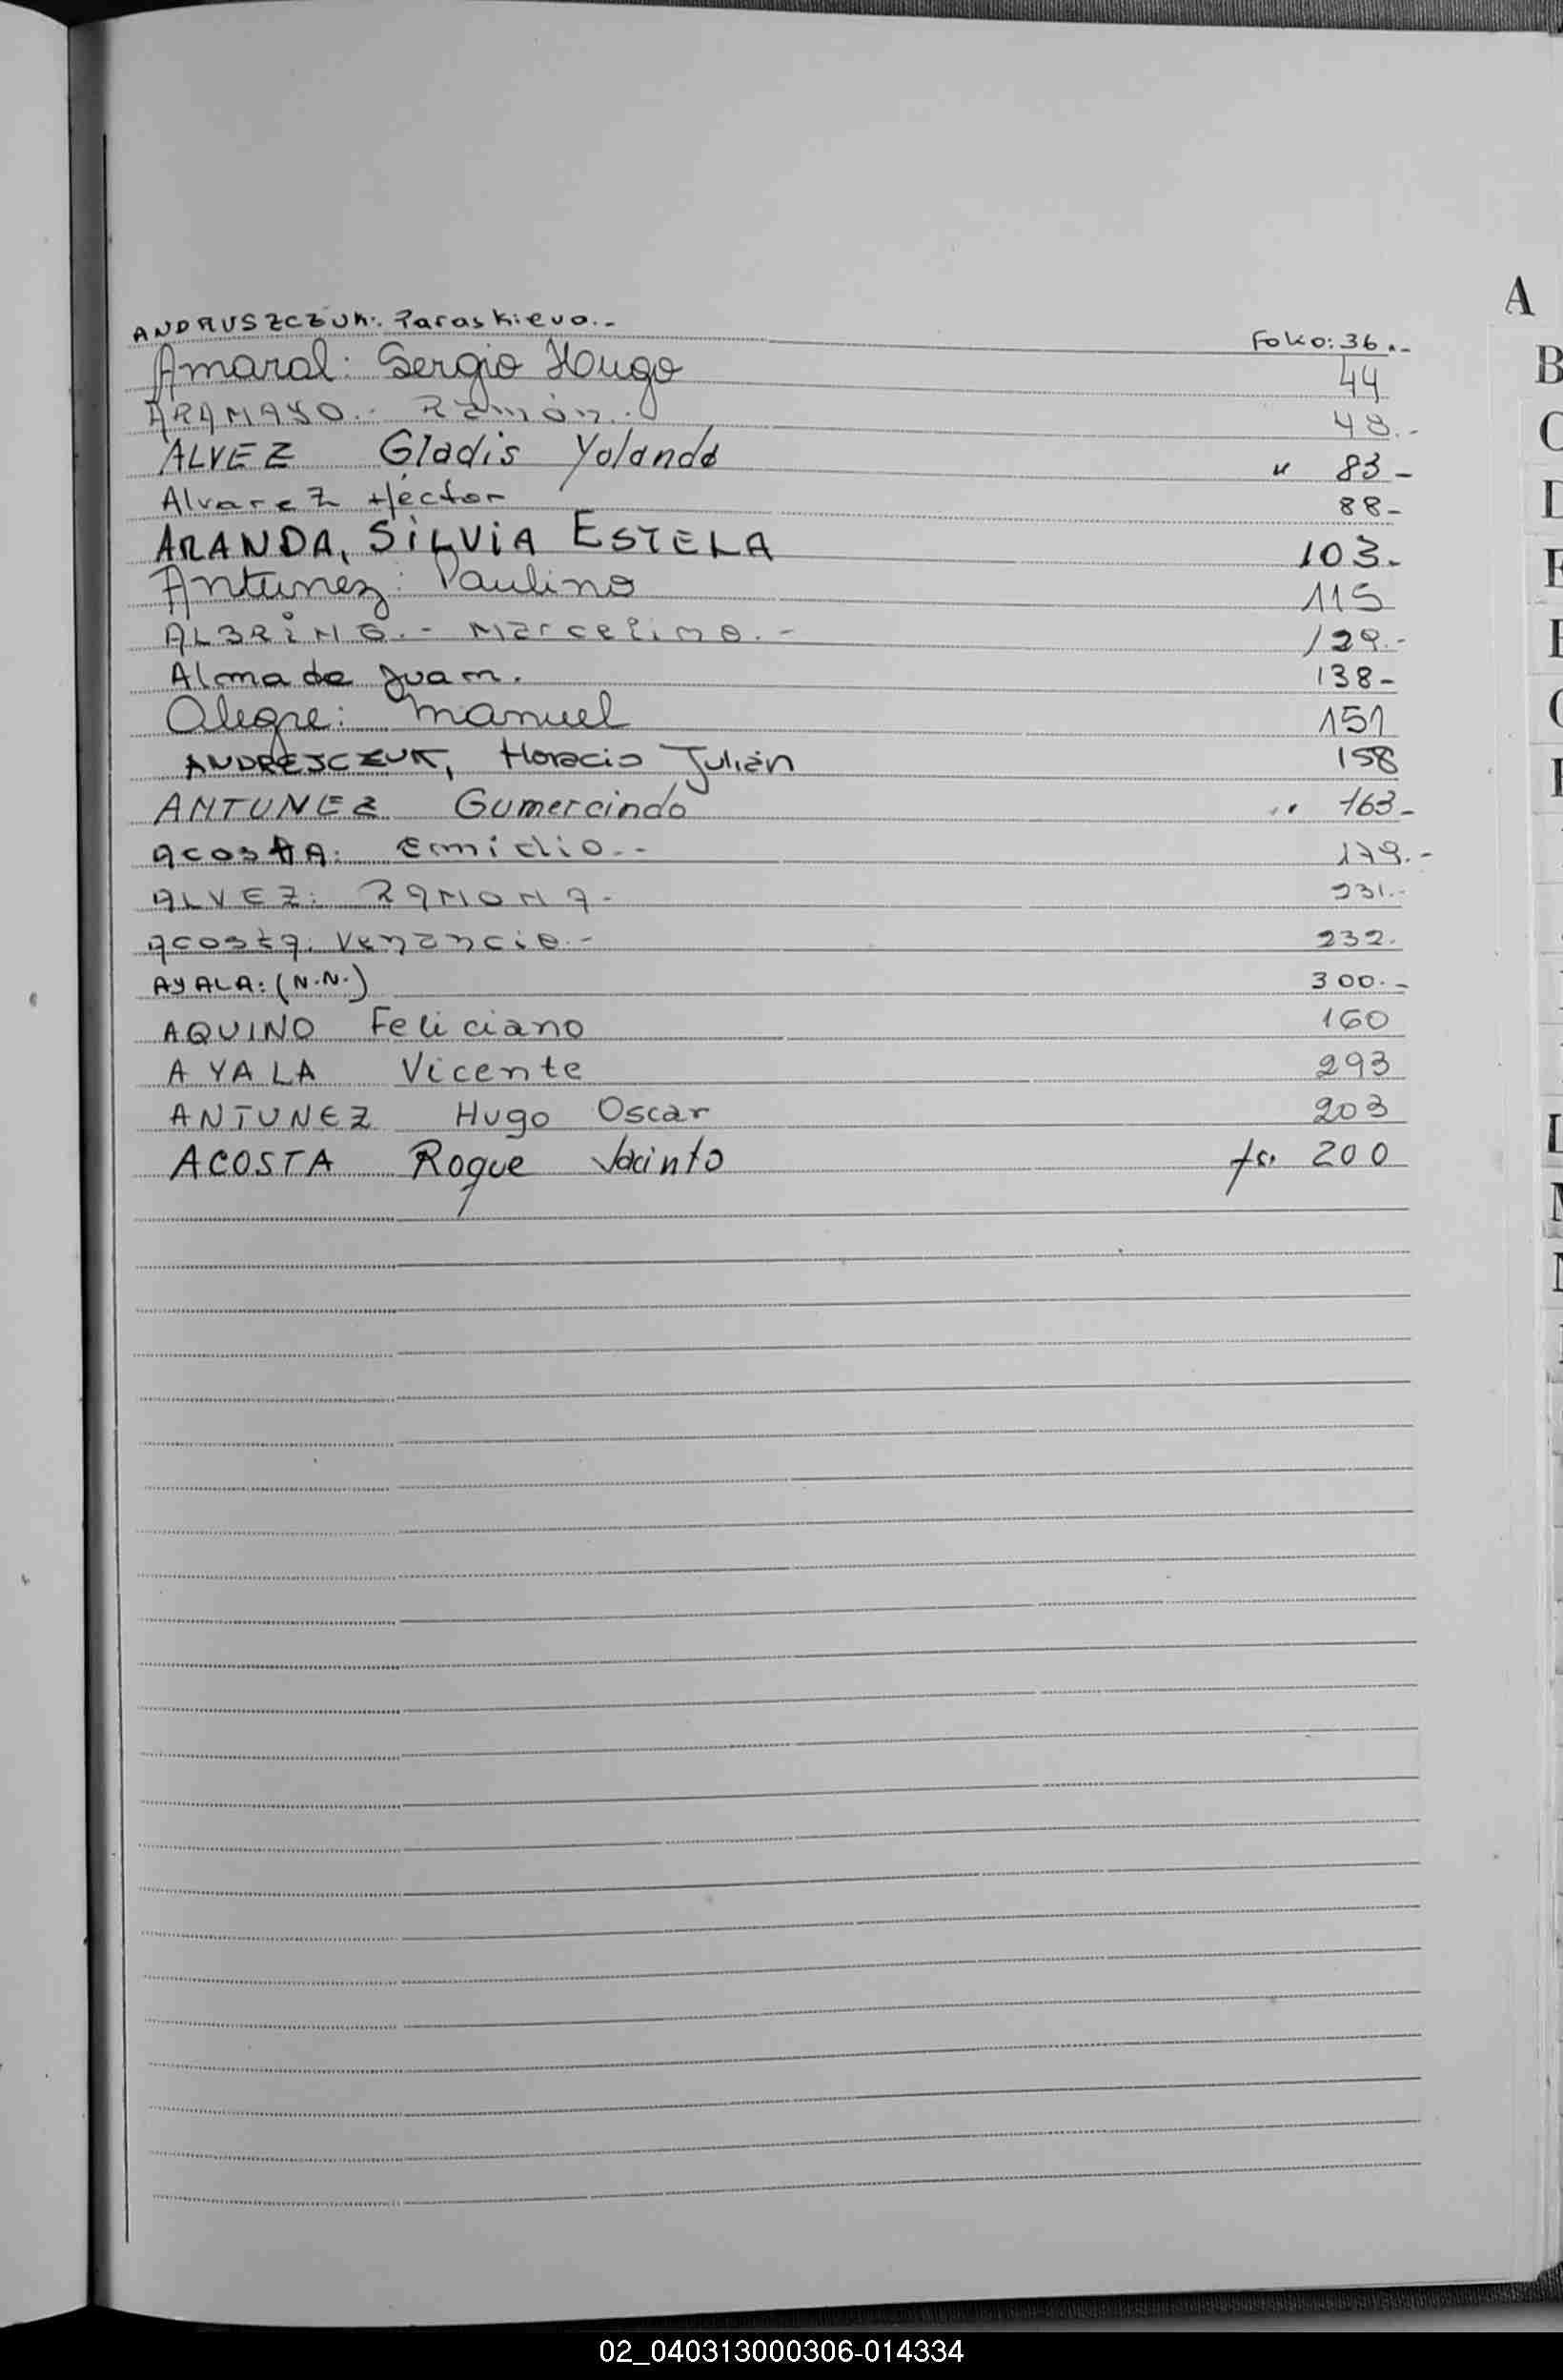 A
ANDRUSZCZUK:. Paraskieva.- Folio: 36.-
B
Amaral: Sergio Hugo 44
ARAMAYO.- Ramón.- 48.-
C
ALVEZ Gladis Yolanda " 83-
Alvarez Héctor 88-
D
ARANDA, SILVIA ESTELA 103.
Antunez: Paulino 115
ALBRINO.- Marcelino.- 129.-
Almada Juan. 138-
Alegre: Manuel 151
ANDREJCZUK, Horacio Julián 158
ANTUNEZ Gumercindo " 163-
ACOSTA: Emidio.- 179.-
ALVEZ: RAMONA- 231.-
Acosta: Venancio.- 232.
AYALA: (N.N.) 300.-
AQUINO Feliciano 160
AYALA Vicente 293
ANTUNEZ Hugo Oscar 203
L
ACOSTA Roque Jacinto fo. 200
M
02_040313000306-014334